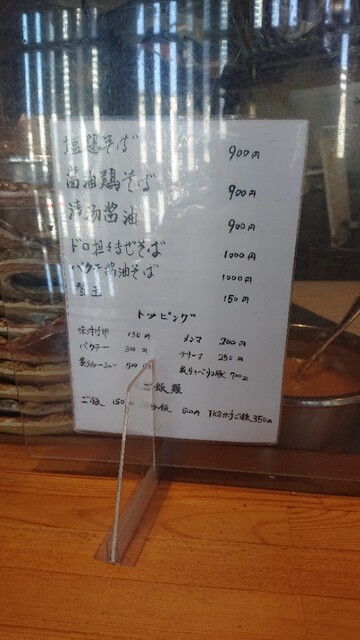 塩鶏そば 900円
醤油鶏そば 900円
清湯醤油 900円
ドロ担々まぜそば 1000円
パクチー醤油そば 1000円
替玉 150円
トッピング
味付け卵 150円 メンマ 200円
パクチー 300円 250円
炙りチャーシュー 500円 700円
ご飯類
ご飯 150 飯 TKG 350円